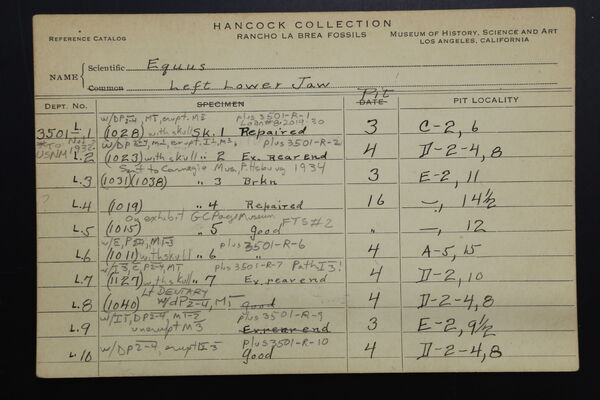 HANCOCK COLLECTION
REFERENCE CATALOG
RANCHO LA BREA FOSSILS
MUSEUM OF HISTORY, SCIENCE AND ART
LOS ANGELES, CALIFORNIA
NAME
Scientific Equus
Common Left Lower Jaw
DEPT. NO.
SPECIMEN
Pit
DATE
PIT LOCALITY
w/DP2-4, M1, erupt. M2 plus 3501-R-1
Loan # 8-2019.30
3501- L.1 (1028) with skull Sk. 1 Repaired 3 C-2, 6
*TO USNM Nov 1932
w/DP2-4, M1-2, erupt. I1, M3, plus 3501-R-2
L.2 (1023) with skull " 2 Ex. rear end 4 D-2-4,8
Sent to Carnegie Mus. Pittsburg 1934
L.3 (1031)(1038) " 3 Brkn 3 E-2, 11
? L.4 (1019) " 4 Repaired 16 —, 14½
On exhibit G C Page Museum
L.5 (1015) " 5 good FTS #2 " —, 12
w/E, P2-4, M1-3 plus 3501-R-6
L.6 (1011) with skull " 6 " 4 A-5, 15
w/I-3, E, P2-4, M1 plus 3501-R-7 Path I3!
L.7 (1127) with skull " 7 Ex. rear end 4 D-2, 10
Lt DENTARY
L.8 (1040) w/dP2-4, M1 good 4 D-2-4,8
w/I1, DP2-4, M1-2 plus 3501-R-9
L.9 unerupt M3 Ex. rear end 3 E-2, 9½
w/DP2-4, erupt I3 plus 3501-R-10
L.10 good 4 D-2-4,8